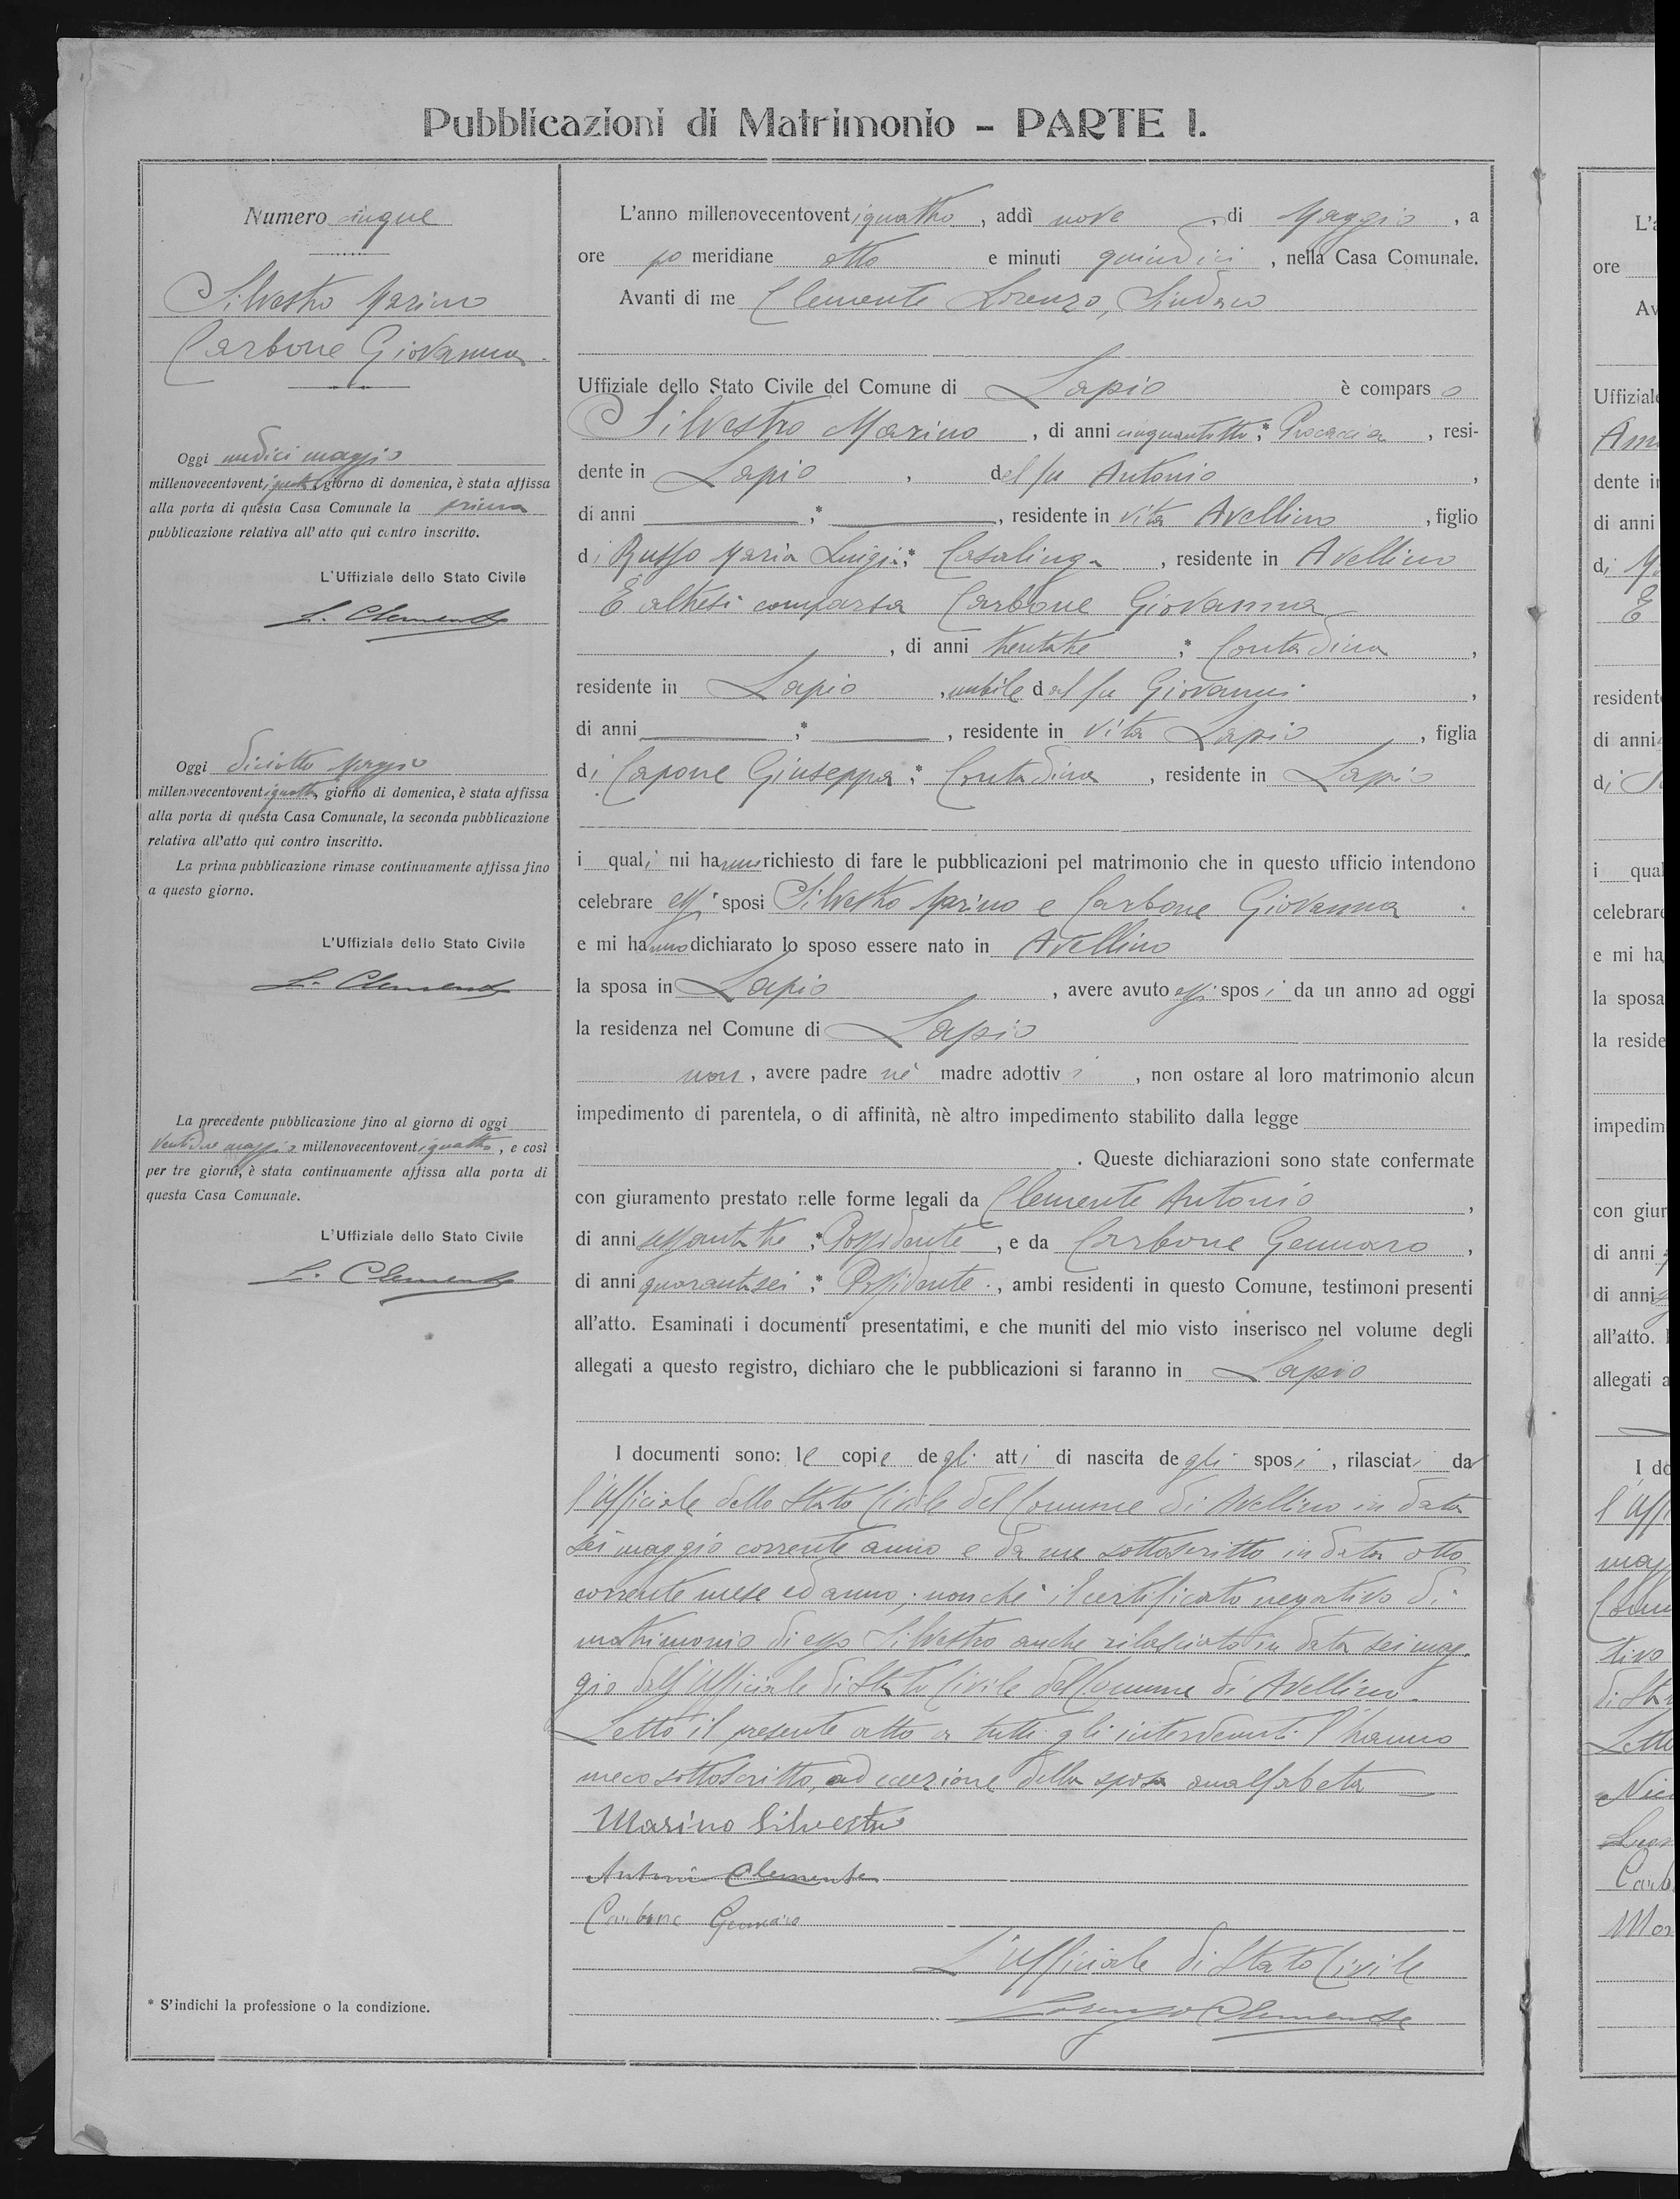 Pubblicazioni di Matrimonio - PARTE I.
Numero cinque
Silvestro Marino
Carbone Giovanna
Oggi undici maggio
millenovecentoventiquattro, giorno di domenica, è stata affissa
alla porta di questa Casa Comunale la prima
pubblicazione relativa all'atto qui contro inscritto.
L'Uffiziale dello Stato Civile
L. Clemente
Oggi diciotto Maggio
millenovecentoventiquattro giorno di domenica, è stata affissa
alla porta di questa Casa Comunale, la seconda pubblicazione
relativa all'atto qui contro inscritto.
La prima pubblicazione rimase continuamente affissa fino
a questo giorno.
L'Uffiziale dello Stato Civile
L. Clemente
La precedente pubblicazione fino al giorno di oggi
ventidue maggio millenovecentoventiquattro, e così
per tre giorni, è stata continuamente affissa alla porta di
questa Casa Comunale.
L'Uffiziale dello Stato Civile
L. Clemente
* S'indichi la professione o la condizione.
L'anno millenovecentoventiquattro, addì nove, di Maggio, a
ore po meridiane otto e minuti quindici, nella Casa Comunale.
Avanti di me Clemente Lorenzo, Sindaco
Uffiziale dello Stato Civile del Comune di Lapio è comparso
Silvestro Marino, di anni cinquantotto;* Procaccia, resi-
dente in Lapio, del fu Antonio,
di anni ;* , residente in vita Avellino, figlio
di Russo Maria Luigia;* Casalinga, residente in Avellino
È altresì comparsa Carbone Giovanna
, di anni trentatre ;* Contadina,
residente in Lapio, nubile del fu Giovanni,
di anni ;* , residente in vita Lapio, figlia
di Capone Giuseppa;* Contadina, residente in Lapio
i quali mi hanno richiesto di fare le pubblicazioni pel matrimonio che in questo ufficio intendono
celebrare essi sposi Silvestro Marino e Carbone Giovanna.
e mi hanno dichiarato lo sposo essere nato in Avellino
la sposa in Lapio, avere avuto essi sposi da un anno ad oggi
la residenza nel Comune di Lapio
non, avere padre nè madre adottivi, non ostare al loro matrimonio alcun
impedimento di parentela, o di affinità, nè altro impedimento stabilito dalla legge
. Queste dichiarazioni sono state confermate
con giuramento prestato nelle forme legali da Clemente Antonio,
di anni sessantatre ;* Possidente, e da Carbone Gennaro,
di anni quarantasei ;* Possidente., ambi residenti in questo Comune, testimoni presenti
all'atto. Esaminati i documenti presentatimi, e che muniti del mio visto inserisco nel volume degli
allegati a questo registro, dichiaro che le pubblicazioni si faranno in Lapio
I documenti sono: le copie degli atti di nascita degli sposi, rilasciati dal
l'Ufficiale dello Stato Civile del Comune di Avellino in data
sei maggio corrente anno e da me sottoscritto in data otto
corrente mese ed anno; nonchè il certificato negativo di
matrimonio di esso Silvestro anche rilasciato in data sei mag-
gio dall'Ufficiale di Stato Civile del Comune di Avellino.
Letto il presente atto a tutti gli intervenuti l'hanno
meco sottoscritto, ad eccezione della sposa analfabeta
Marino Silvestro
Antonio Clemente
Carbone Gennaro
L'Ufficiale di Stato Civile
Lorenzo Clemente